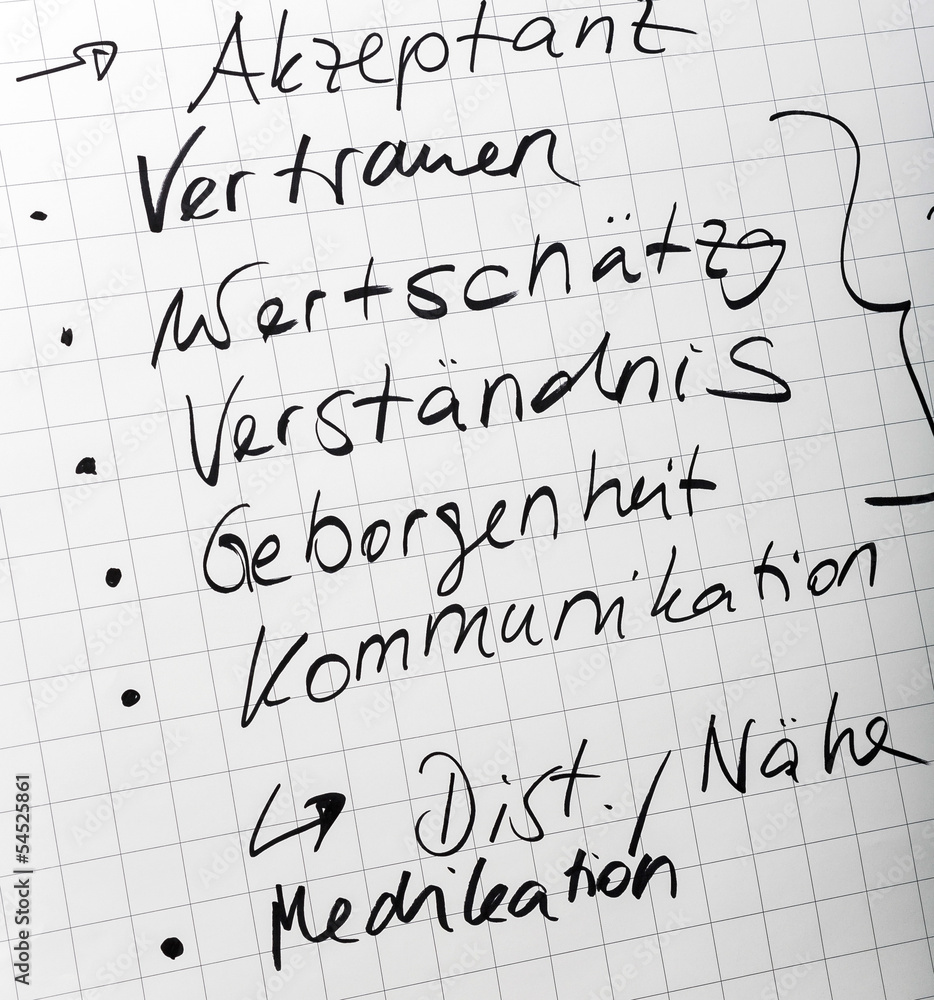 → Akzeptanz
• Vertrauen
• Wertschätzg
• Verständnis
• Geborgenheit
• Kommunikation
↳ Dist. / Nähe
• Medikation
Adobe Stock | #54525861